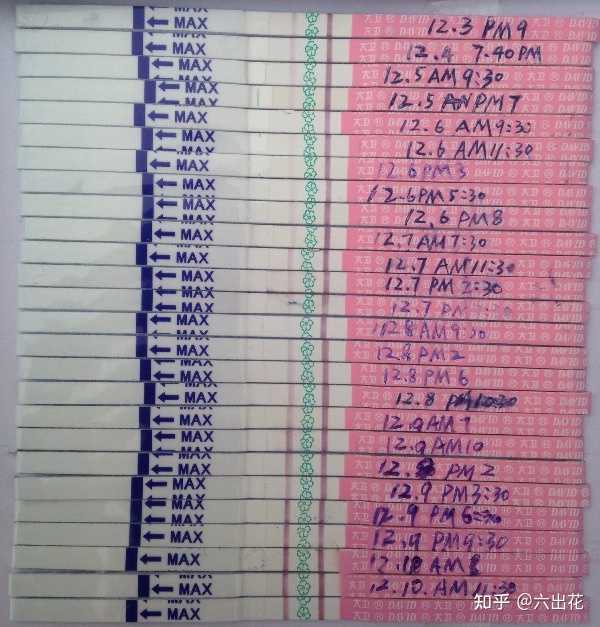 MAX 大卫 DAVID 12.3 PM9
MAX 12.4 7.40PM
MAX 12.5 AM 9:30
MAX 12.5 PM7
MAX 12.6 AM9:30
MAX 12.6 AM11:30
MAX 12.6 PM3
MAX 12.6 PM5:30
MAX 12.6 PM8
MAX 12.7 AM7:30
MAX 12.7 AM11:30
MAX 12.7 PM 2:30
MAX 12.7 PM
MAX 12.8 AM9:30
MAX 12.8 PM2
MAX 12.8 PM6
MAX 12.8
MAX 12.9 AM7
MAX 12.9 AM10
MAX 12.9 PM2
MAX 12.9 PM3:30
MAX 12.9 PM6:30
MAX 12.9 PM9:30
MAX 12.10 AM8
MAX 12.10. AM11:30
MAX
知乎 @六出花